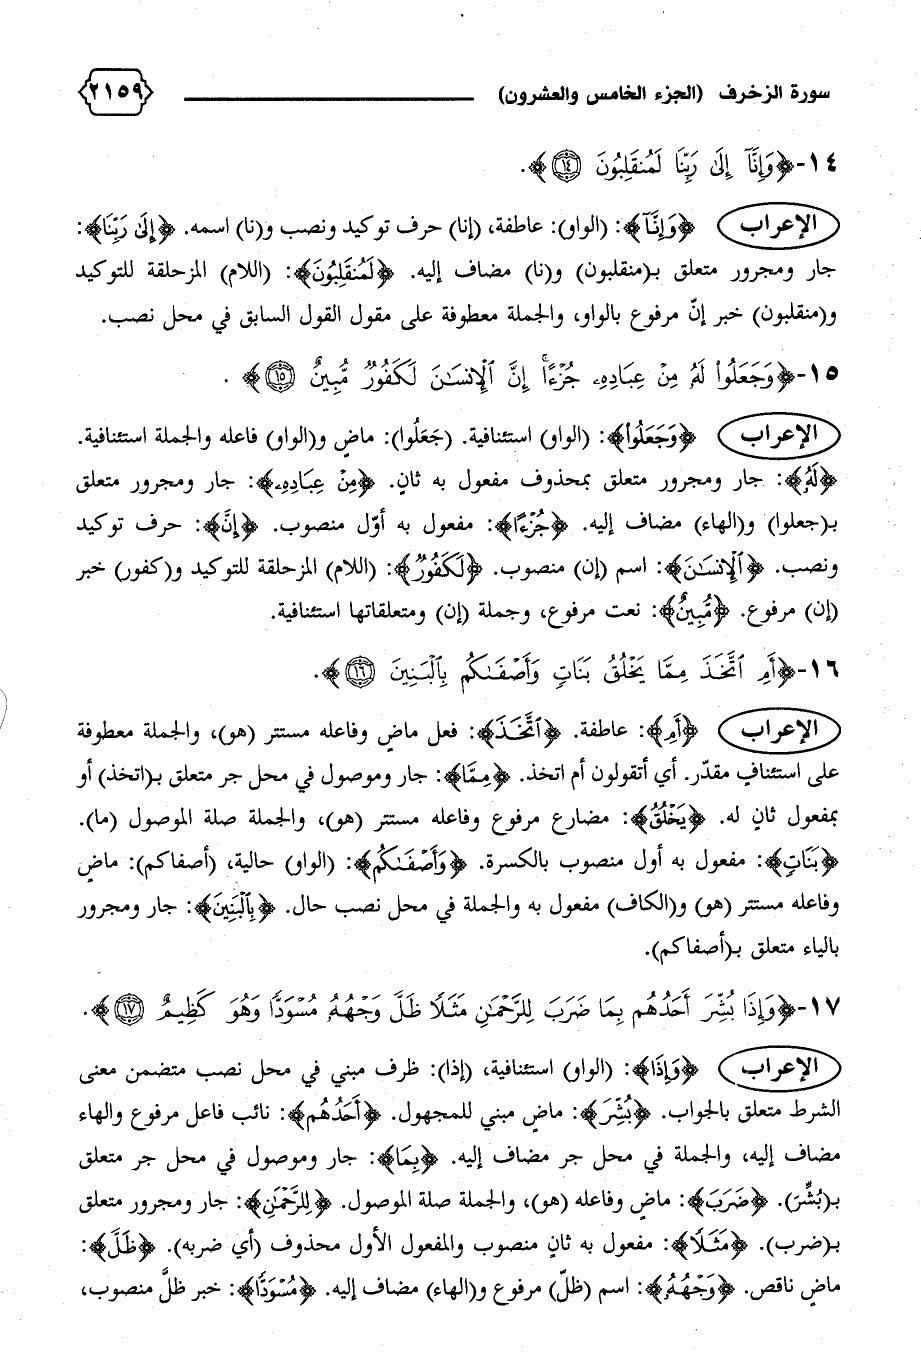 سورة الزخرف (الجزء الخامس والعشرون) ٢١٥٩
١٤-﴿وَإِنَّآ إِلَىٰ رَبِّنَا لَمُنقَلِبُونَ ١٤﴾.
الإعراب ﴿وَإِنَّآ﴾: (الواو): عاطفة، (إنا) حرف توكيد ونصب و(نا) اسمه. ﴿إِلَىٰ رَبِّنَا﴾:
جار ومجرور متعلق بـ(منقلبون) و(نا) مضاف إليه. ﴿لَمُنقَلِبُونَ﴾: (اللام) المزحلقة للتوكيد
و(منقلبون) خبر إنّ مرفوع بالواو، والجملة معطوفة على مقول القول السابق في محل نصب.
١٥-﴿وَجَعَلُوا۟ لَهُۥ مِنْ عِبَادِهِۦ جُزْءًا ۚ إِنَّ ٱلْإِنسَـٰنَ لَكَفُورٌ مُّبِينٌ ١٥﴾.
الإعراب ﴿وَجَعَلُوا۟﴾: (الواو) استئنافية. (جَعَلُوا): ماضٍ و(الواو) فاعله والجملة استئنافية.
﴿لَهُۥ﴾: جار ومجرور متعلق بمحذوف مفعول به ثانٍ. ﴿مِنْ عِبَادِهِۦ﴾: جار ومجرور متعلق
بـ(جعلوا) و(الهاء) مضاف إليه. ﴿جُزْءًا﴾: مفعول به أوّل منصوب. ﴿إِنَّ﴾: حرف توكيد
ونصب. ﴿ٱلْإِنسَـٰنَ﴾: اسم (إن) منصوب. ﴿لَكَفُورٌ﴾: (اللام) المزحلقة للتوكيد و(كفور) خبر
(إن) مرفوع. ﴿مُّبِينٌ﴾: نعت مرفوع، وجملة (إن) ومتعلقاتها استئنافية.
١٦-﴿أَمِ ٱتَّخَذَ مِمَّا يَخْلُقُ بَنَاتٍ وَأَصْفَىٰكُم بِٱلْبَنِينَ ١٦﴾.
الإعراب ﴿أَمِ﴾: عاطفة. ﴿ٱتَّخَذَ﴾: فعل ماضٍ وفاعله مستتر (هو)، والجملة معطوفة
على استئنافٍ مقدّر. أي أتقولون أم اتخذ. ﴿مِمَّا﴾: جار وموصول في محل جر متعلق بـ(اتخذ) أو
بمفعول ثانٍ له. ﴿يَخْلُقُ﴾: مضارع مرفوع وفاعله مستتر (هو)، والجملة صلة الموصول (ما).
﴿بَنَاتٍ﴾: مفعول به أول منصوب بالكسرة. ﴿وَأَصْفَىٰكُم﴾: (الواو) حالية، (أصفاكم): ماض
وفاعله مستتر (هو) و(الكاف) مفعول به والجملة في محل نصب حال. ﴿بِٱلْبَنِينَ﴾: جار ومجرور
بالياء متعلق بـ(أصفاكم).
١٧-﴿وَإِذَا بُشِّرَ أَحَدُهُم بِمَا ضَرَبَ لِلرَّحْمَـٰنِ مَثَلًا ظَلَّ وَجْهُهُۥ مُسْوَدًّا وَهُوَ كَظِيمٌ ١٧﴾.
الإعراب ﴿وَإِذَا﴾: (الواو) استئنافية، (إذا): ظرف مبني في محل نصب متضمن معنى
الشرط متعلق بالجواب. ﴿بُشِّرَ﴾: ماضٍ مبني للمجهول. ﴿أَحَدُهُم﴾: نائب فاعل مرفوع والهاء
مضاف إليه، والجملة في محل جر مضاف إليه. ﴿بِمَا﴾: جار وموصول في محل جر متعلق
بـ(بُشِّرَ). ﴿ضَرَبَ﴾: ماضٍ وفاعله (هو)، والجملة صلة الموصول. ﴿لِلرَّحْمَـٰنِ﴾: جار ومجرور متعلق
بـ(ضرب). ﴿مَثَلًا﴾: مفعول به ثانٍ منصوب والمفعول الأول محذوف (أي ضربه). ﴿ظَلَّ﴾:
ماضٍ ناقص. ﴿وَجْهُهُۥ﴾: اسم (ظلّ) مرفوع و(الهاء) مضاف إليه. ﴿مُسْوَدًّا﴾: خبر ظلَّ منصوب،